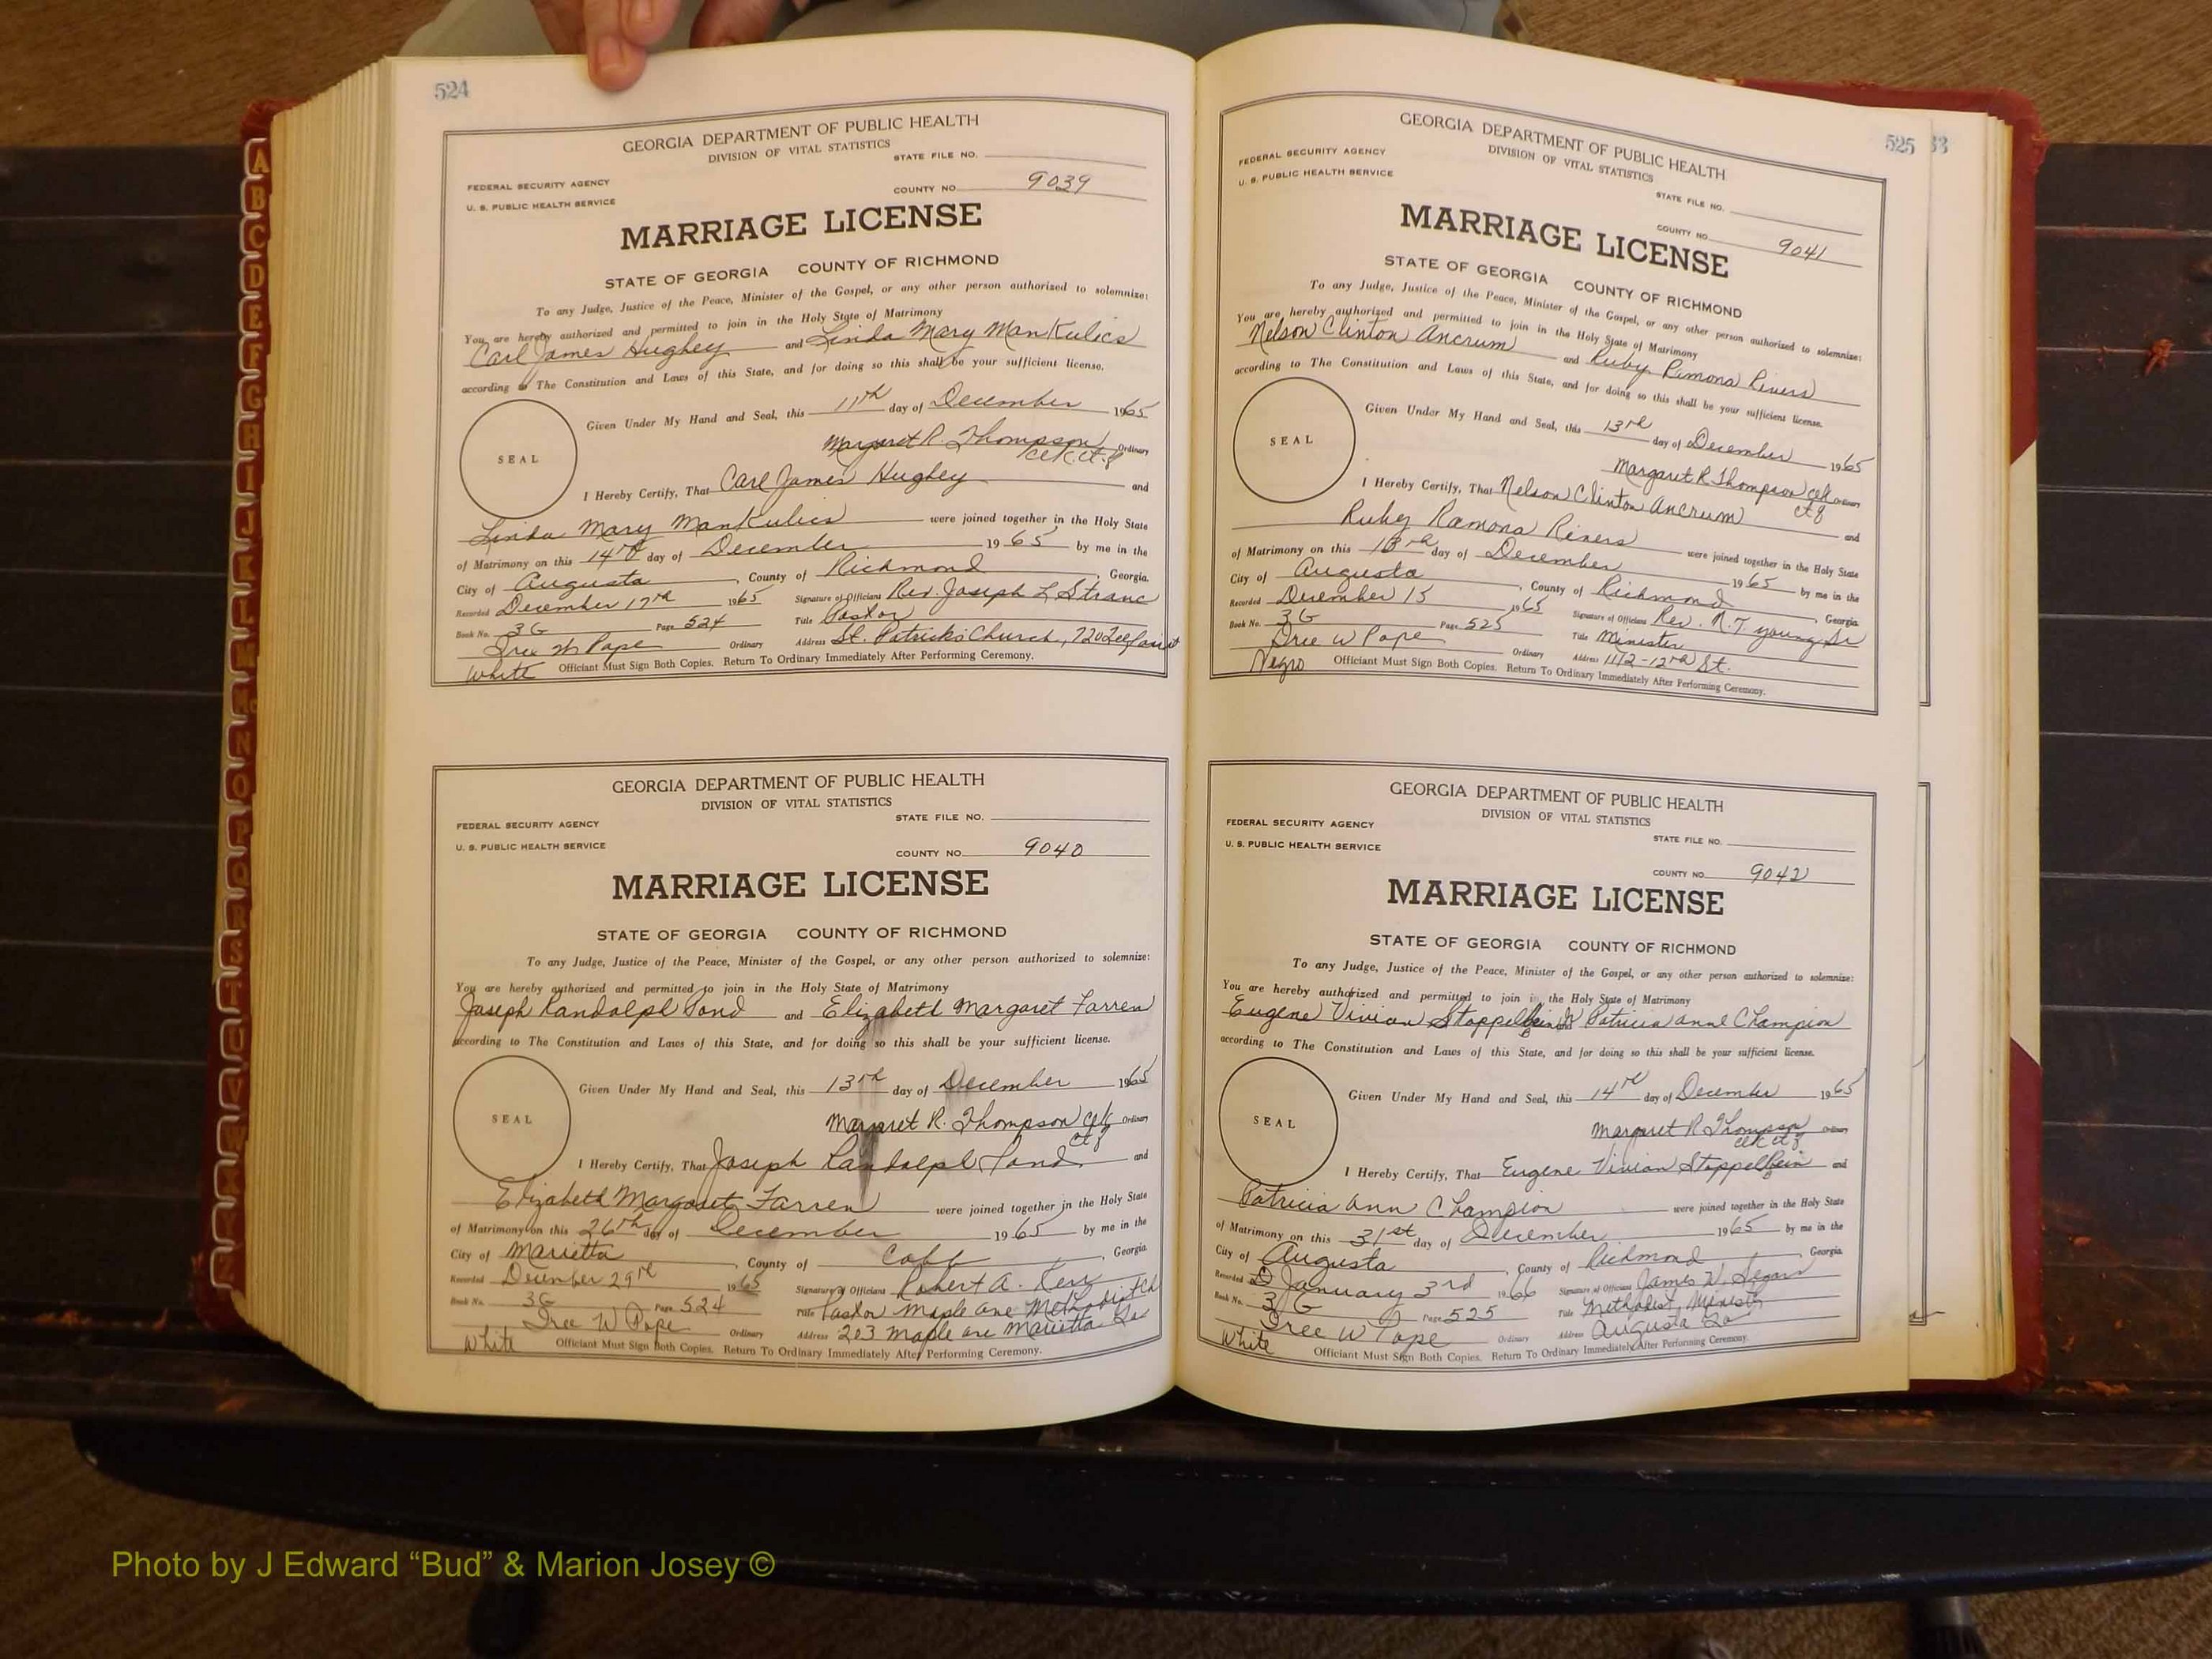 524
GEORGIA DEPARTMENT OF PUBLIC HEALTH
DIVISION OF VITAL STATISTICS
STATE FILE NO.
FEDERAL SECURITY AGENCY
U. S. PUBLIC HEALTH SERVICE
COUNTY NO. 9039
MARRIAGE LICENSE
STATE OF GEORGIA COUNTY OF RICHMOND
To any Judge, Justice of the Peace, Minister of the Gospel, or any other person authorized to solemnize:
You are hereby authorized and permitted to join in the Holy State of Matrimony
Carl James Hughey and Linda Mary Mankulics
according to The Constitution and Laws of this State, and for doing so this shall be your sufficient license.
SEAL
Given Under My Hand and Seal, this 11th day of December 1965
Margaret R. Thompson Ordinary
I Hereby Certify, That Carl James Hughey and
Linda Mary Mankulics were joined together in the Holy State
of Matrimony on this 14th day of December 1965 by me in the
City of Augusta, County of Richmond, Georgia.
Recorded December 17th 1965 Signature of Officiant Rev. Joseph L Stranc
Book No. 3G Page 524 Title Pastor
Dree W Pope Ordinary Address St. Patrick's Church, 720
White Officiant Must Sign Both Copies. Return To Ordinary Immediately After Performing Ceremony.
GEORGIA DEPARTMENT OF PUBLIC HEALTH
DIVISION OF VITAL STATISTICS
STATE FILE NO.
FEDERAL SECURITY AGENCY
U. S. PUBLIC HEALTH SERVICE
COUNTY NO. 9040
MARRIAGE LICENSE
STATE OF GEORGIA COUNTY OF RICHMOND
To any Judge, Justice of the Peace, Minister of the Gospel, or any other person authorized to solemnize:
You are hereby authorized and permitted to join in the Holy State of Matrimony
Joseph Randolph and Elizabeth Margaret Farren
according to The Constitution and Laws of this State, and for doing so this shall be your sufficient license.
SEAL
Given Under My Hand and Seal, this 13th day of December 1965
Margaret R. Thompson Ordinary
I Hereby Certify, That Joseph Randolph and
Elizabeth Margaret Farren were joined together in the Holy State
of Matrimony on this 26th day of December 1965 by me in the
City of Marietta, County of Cobb, Georgia
Recorded December 29th 1965 Signature of Officiant Robert A. Kerr
Book No. 3G Page 524 Title Pastor Maple Ave Methodist Ch
Dree W Pope Ordinary Address 203 Maple Ave Marietta Ga
White Officiant Must Sign Both Copies. Return To Ordinary Immediately After Performing Ceremony.
525
33
GEORGIA DEPARTMENT OF PUBLIC HEALTH
DIVISION OF VITAL STATISTICS
FEDERAL SECURITY AGENCY
U. S. PUBLIC HEALTH SERVICE
STATE FILE NO.
COUNTY NO. 9041
MARRIAGE LICENSE
STATE OF GEORGIA COUNTY OF RICHMOND
To any Judge, Justice of the Peace, Minister of the Gospel, or any other person authorized to solemnize:
You are hereby authorized and permitted to join in the Holy State of Matrimony
Nelson Clinton Ancrum and Ruby Ramona Rivers
according to The Constitution and Laws of this State, and for doing so this shall be your sufficient license.
SEAL
Given Under My Hand and Seal, this 13th day of December 1965
Margaret R Thompson Ordinary
I Hereby Certify, That Nelson Clinton Ancrum and
Ruby Ramona Rivers were joined together in the Holy State
of Matrimony on this 13th day of December 1965 by me in the
City of Augusta, County of Richmond, Georgia
Recorded December 15 1965 Signature of Officiant Rev. N.T. Young Sr
Book No. 3G Page 525 Title Minister
Dree W Pope Ordinary Address 1112-12th St.
Negro Officiant Must Sign Both Copies. Return To Ordinary Immediately After Performing Ceremony.
GEORGIA DEPARTMENT OF PUBLIC HEALTH
DIVISION OF VITAL STATISTICS
FEDERAL SECURITY AGENCY
U. S. PUBLIC HEALTH SERVICE
STATE FILE NO.
COUNTY NO. 9042
MARRIAGE LICENSE
STATE OF GEORGIA COUNTY OF RICHMOND
To any Judge, Justice of the Peace, Minister of the Gospel, or any other person authorized to solemnize:
You are hereby authorized and permitted to join in the Holy State of Matrimony
Eugene Vivian Stoppelbein Patricia Anne Champion
according to The Constitution and Laws of this State, and for doing so this shall be your sufficient license.
SEAL
Given Under My Hand and Seal, this 14th day of December 1965
Margaret R Thompson Ordinary
I Hereby Certify, That Eugene Vivian Stoppelbein and
Patricia Ann Champion were joined together in the Holy State
of Matrimony on this 31st day of December 1965 by me in the
City of Augusta, County of Richmond, Georgia
Recorded January 3rd 1966 Signature of Officiant James W. Segars
Book No. 3G Page 525 Title Methodist Minister
Dree W Pope Ordinary Address Augusta Ga
White Officiant Must Sign Both Copies. Return To Ordinary Immediately After Performing Ceremony.
Photo by J Edward “Bud” & Marion Josey ©